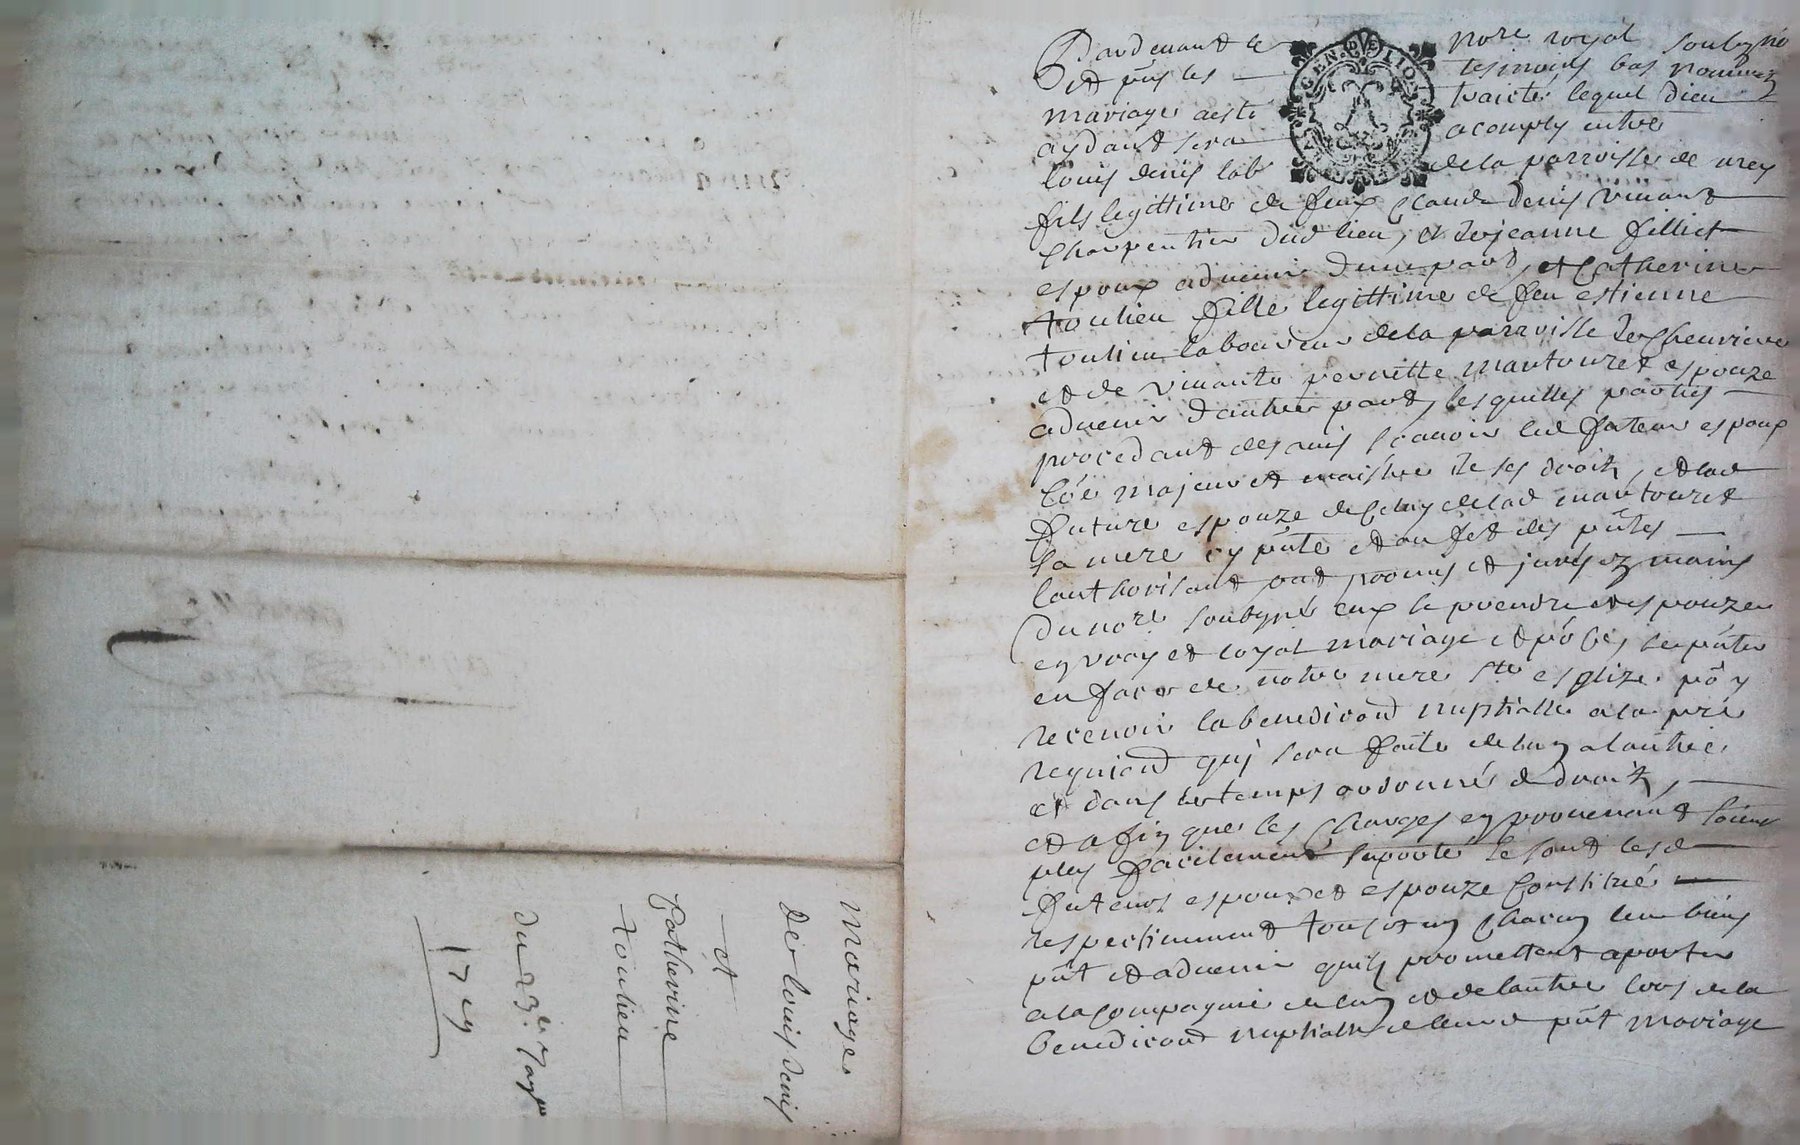 Pardevant le nore royal soubzné
et pnts les tesmoins bas nommez
mariage a esté traicté lequel dieu
aydant sera acomply entre
louis denis lab de la parroisse de urey
fils legittime de feux claude denis vivant
charpentier dud lieu, et de jeanne filliet
espoux advenir d'une part, et Catherine
toulieu fille legittime de feu estienne
toulieu laboureur de la parroisse de chevrieres
et de vivante pernette mantouret espouze
advenir d'autre part, lesquelles parties
procedant des avis scavoir led futeur espoux
co͞e majeur et maistre de ses droits, et lad
future espouze de celuy de lad mantouret
sa mere cy pnte et au fet des pntes
lauthorisant ont promis et juré ez mains
du nore soubzné eux se prendre et espouzer
en vray et loyal mariage et po ce, se pnter
en face de notre mere ste esglize po y
recevoir la benediction nuptialle a la pre
requiõn quy sera faite de lun a lautre
et dans le temps ordonné de droit,
et a fin que les charges en provenant soient
plus facilement suporté se sont lesd
futeurs espoux et espouze constitué
respectivement tous et un chacun leur biens
pnt et advenir quils promettent aporter
a la compagnie de lun et de lautre lors de la
benediction nuptialle de leurd pnt mariage
Mariage
de louis denis
et
Catherine
toulieu
du 23e
17